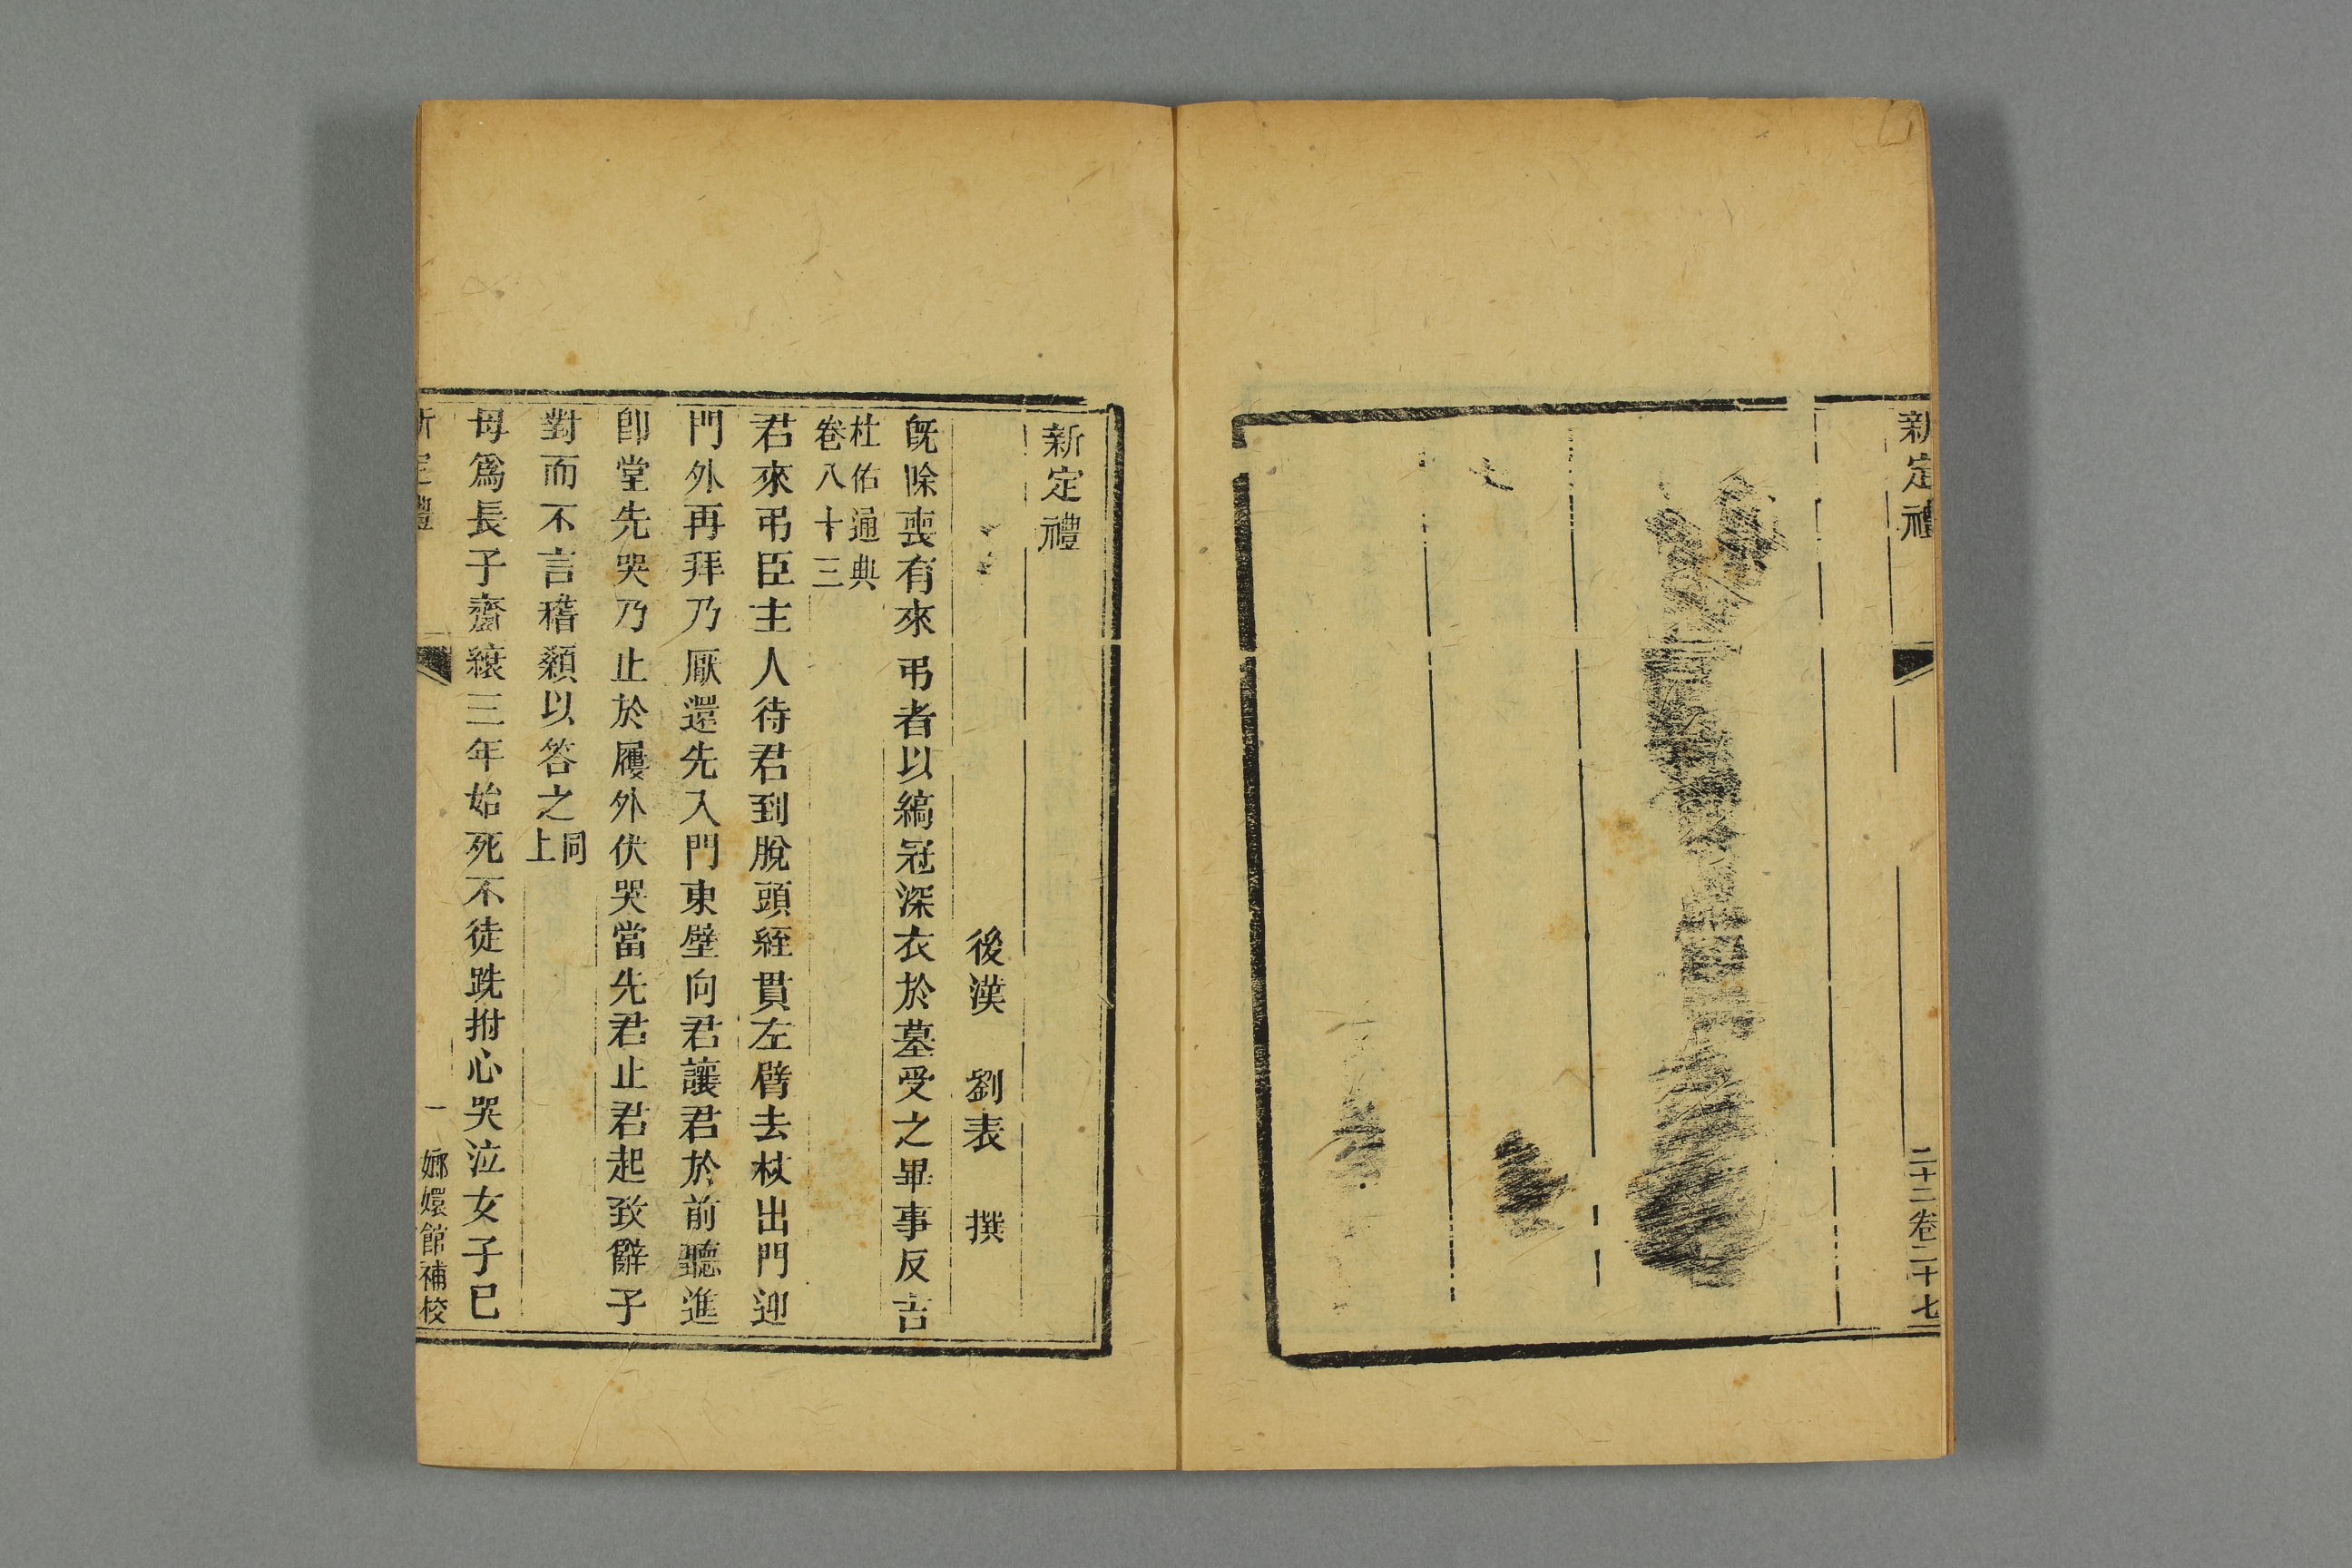 新定禮
二十二卷二十七
新定禮
後漢 劉表 撰
旣除喪有來弔者以縞冠深衣於墓受之畢事反吉
杜佑通典
卷八十三
君來弔臣主人待君到脫頭絰貫左臂去杖出門迎
門外再拜乃厭還先入門東壁向君讓君於前聽進
卽堂先哭乃止於屨外伏哭當先君止君起致辭子
對而不言稽顙以答之同上
母爲長子齋縗三年始死不徒跣拊心哭泣女子已
新定禮
一
嫏嬛館補校